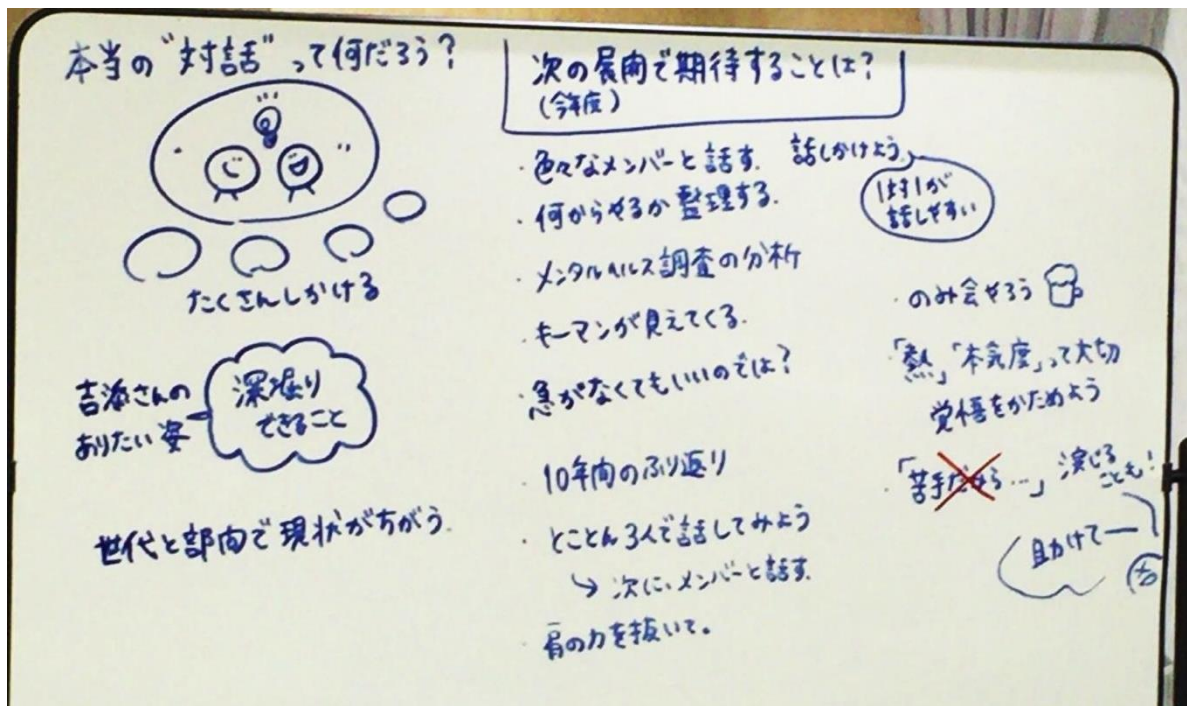 本当の"対話"って何だろう?
たくさんしかける
吉添さんの
ありたい姿
深堀り
できること
世代と部門で現状がちがう.
次の展開で期待することは?
(今年度)
・色々なメンバーと話す. 話しかけよう
1対1が
話しやすい
・何からやるか整理する.
・メンタルヘルス調査の分析
・キーマンが見えてくる.
急がなくてもいいのでは?
・10年間のふり返り
・とことん3人で話してみよう
↳ 次に、メンバーと話す.
・肩の力を抜いて。
・のみ会やろう
・「熱」「本気度」って大切
覚悟をかためよう
・「苦手だから…」演じる
ことも!
助けてー